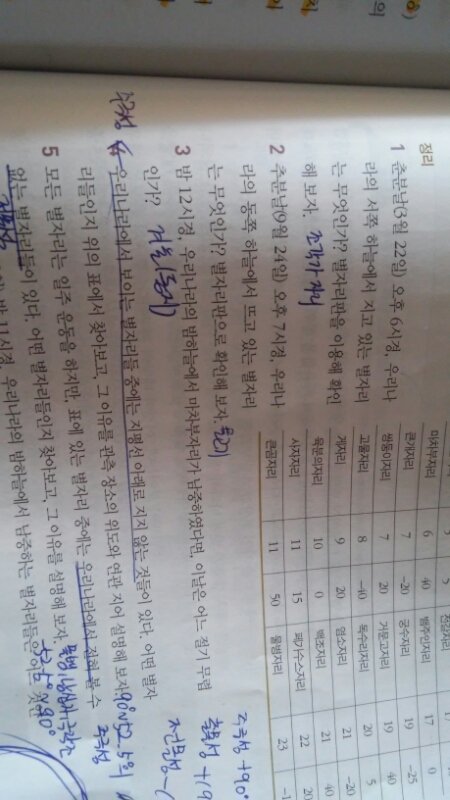 정리
1 춘분날(3월 22일) 오후 6시경, 우리나
라의 서쪽 하늘에서 지고 있는 별자리
는 무엇인가? 별자리판을 이용해 확인
해 보자.
2 추분날(9월 24일) 오후 7시경, 우리나
라의 동쪽 하늘에서 뜨고 있는 별자리
는 무엇인가? 별자리판으로 확인해 보자.
3 밤 12시경 우리나라의 밤하늘에서 마차부자리가 남중하였다면, 이날은 어느 절기 무렵
인가? 겨울(동지)
주극성 4 우리나라에서 보이는 별자리들 중에는 지평선 아래로 지지 않는 것들이 있다. 어떤 별자
리들인지 위의 표에서 찾아보고, 그 이유를 관측 장소의 위도와 연관 지어 설명해 보자.
5 모든 별자리는 일주 운동을 하지만, 표에 있는 별자리 중에는 우리나라에서 전혀 볼 수
없는 별자리들이 있다. 어떤 별자리들인지 찾아보고, 그 이유를 설명해 보자.
밤 11시경, 우리나라의 밤하늘에서 남중하는 별자리들은 어느 것인
마차부자리 6 40 뱀주인자리 17 0
큰개자리 7 -20 궁수자리 19 -25
쌍둥이자리 7 20 거문고자리 19 40
고물자리 8 -40 독수리자리 20 5
게자리 9 20 염소자리 21 -20
육분의자리 10 0 백조자리 21 40
사자자리 11 15 페가수스자리 22
큰곰자리 11 50 물병자리 23 -1
주극성 +90°
출몰성 +
전몰성 -